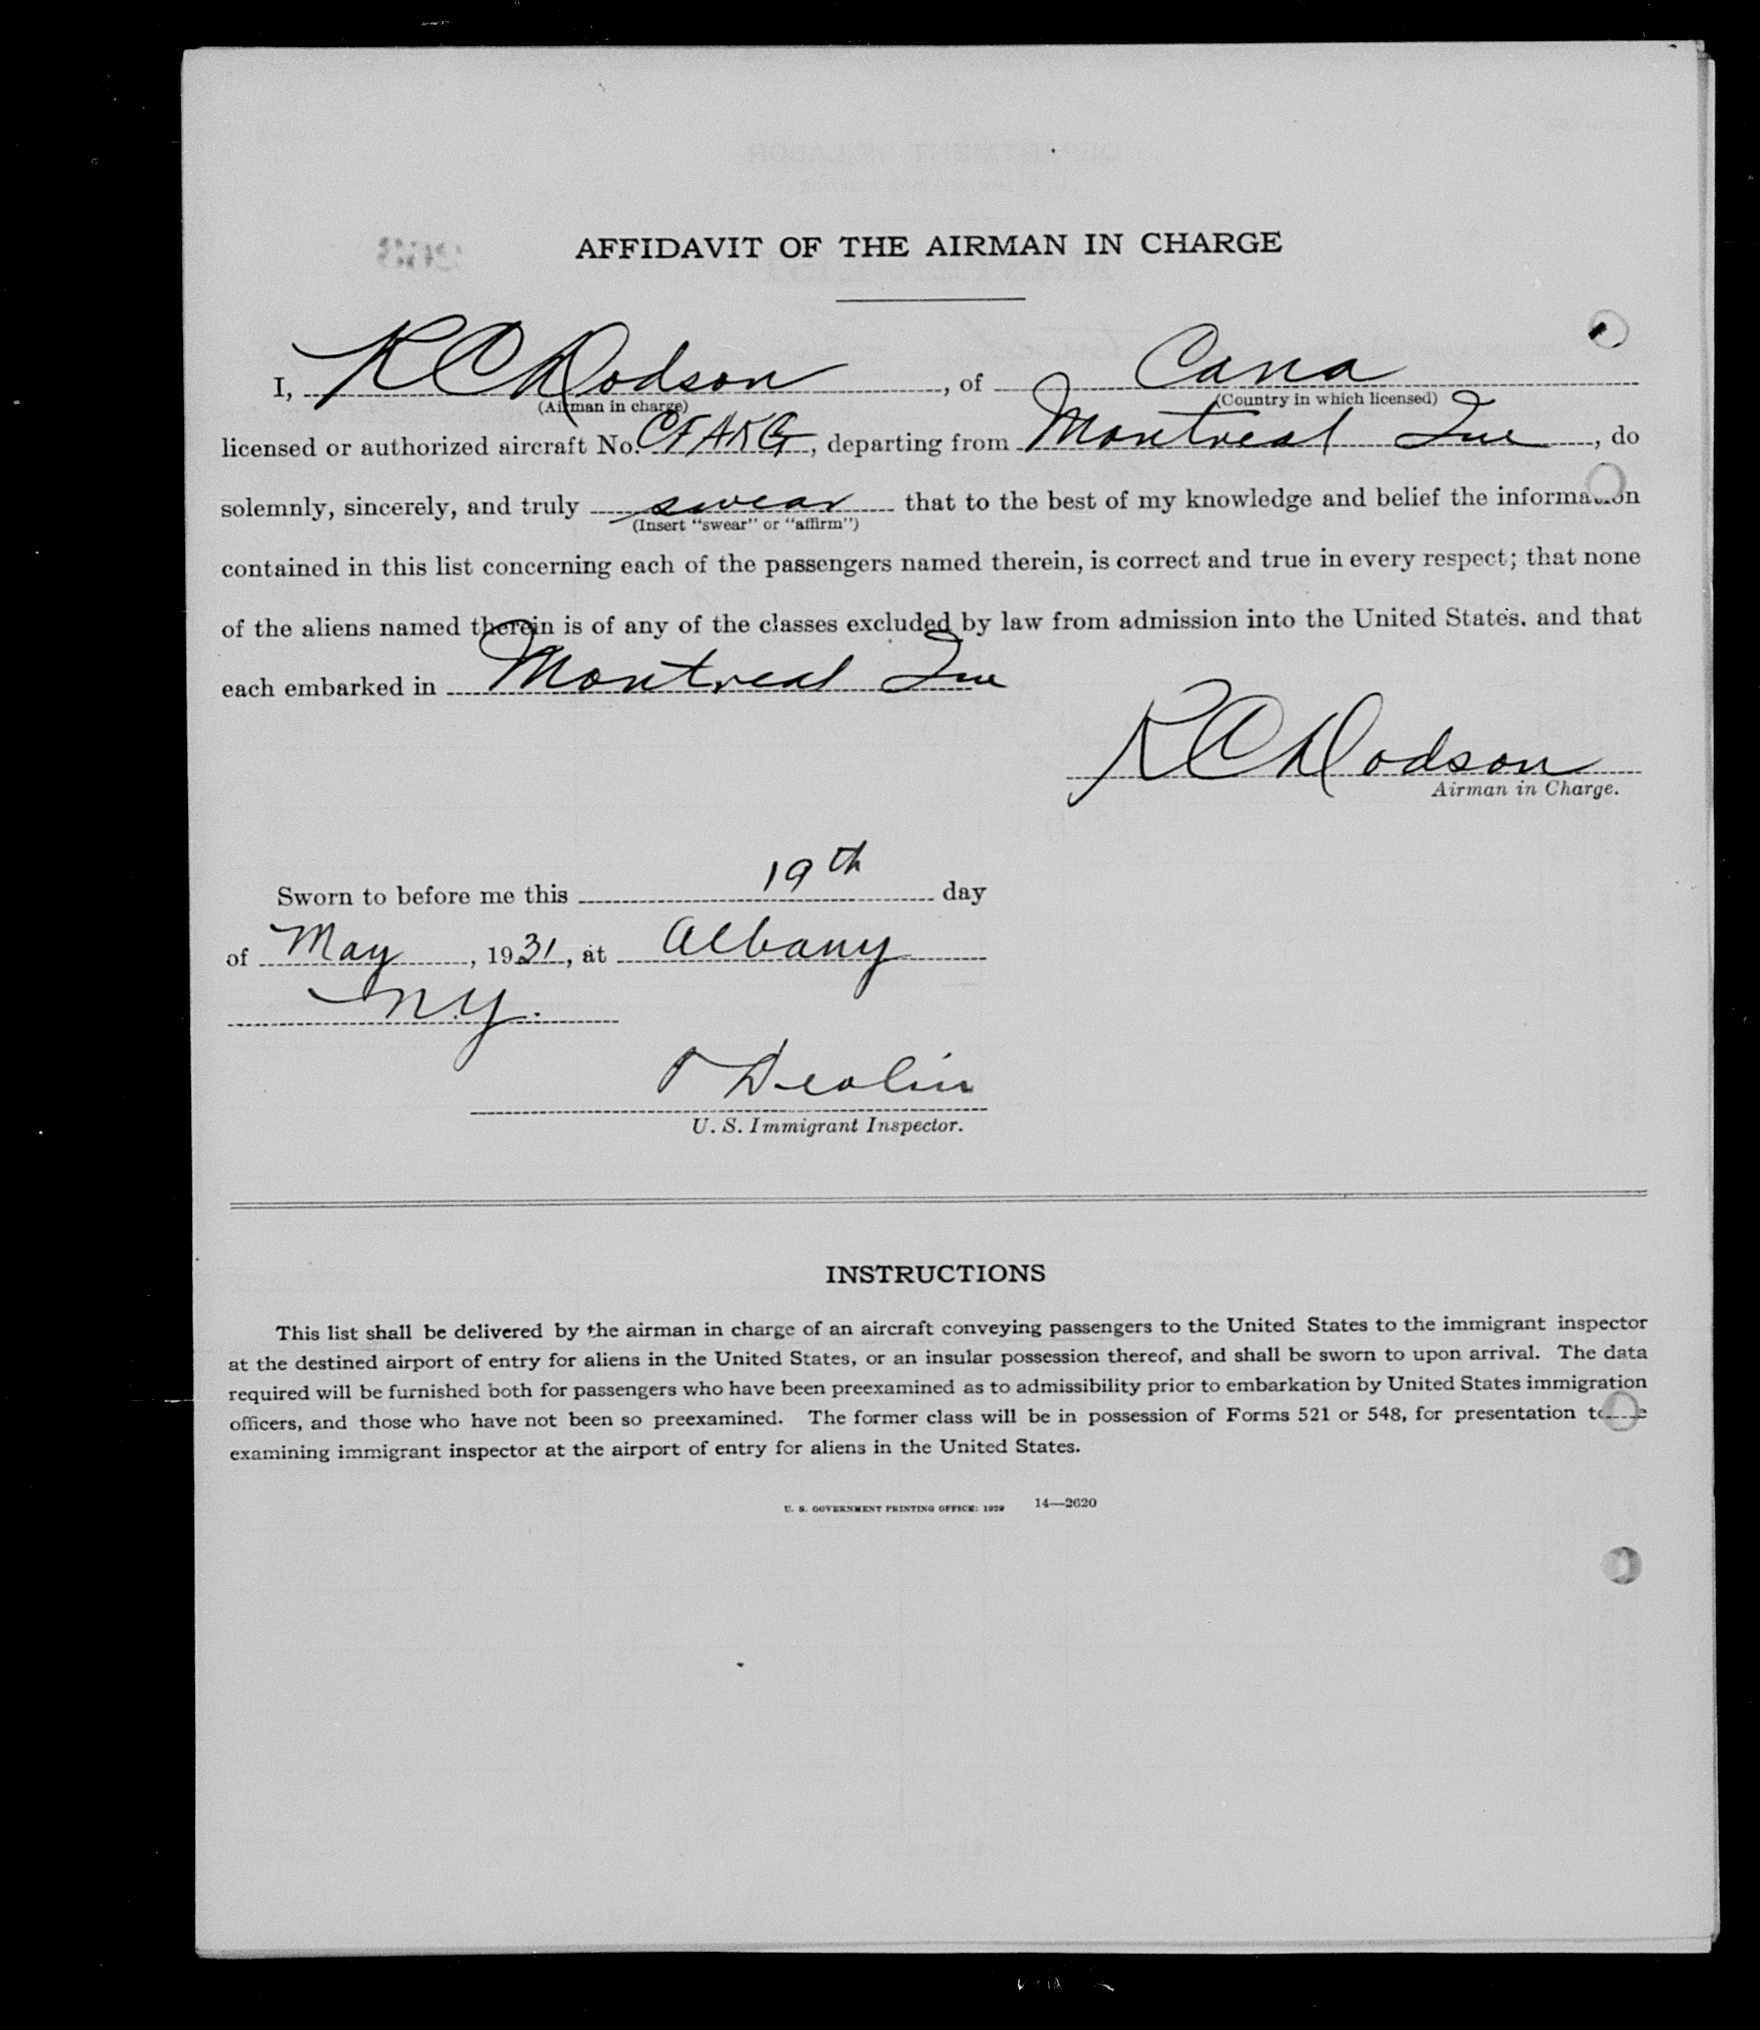 AFFIDAVIT OF THE AIRMAN IN CHARGE
I, R C Dodson, of Cana
(Airman in charge) (Country in which licensed)
licensed or authorized aircraft No. CFAKG, departing from Montreal Que, do
solemnly, sincerely, and truly swear that to the best of my knowledge and belief the information
(Insert "swear" or "affirm")
contained in this list concerning each of the passengers named therein, is correct and true in every respect; that none
of the aliens named therein is of any of the classes excluded by law from admission into the United States. and that
each embarked in Montreal Que
R C Dodson
Airman in Charge.
Sworn to before me this 19th day
of May, 1931, at Albany
N.Y.
U. S. Immigrant Inspector.
INSTRUCTIONS
This list shall be delivered by the airman in charge of an aircraft conveying passengers to the United States to the immigrant inspector
at the destined airport of entry for aliens in the United States, or an insular possession thereof, and shall be sworn to upon arrival. The data
required will be furnished both for passengers who have been preexamined as to admissibility prior to embarkation by United States immigration
officers, and those who have not been so preexamined. The former class will be in possession of Forms 521 or 548, for presentation to
examining immigrant inspector at the airport of entry for aliens in the United States.
U. S. GOVERNMENT PRINTING OFFICE: 1929 14—2620